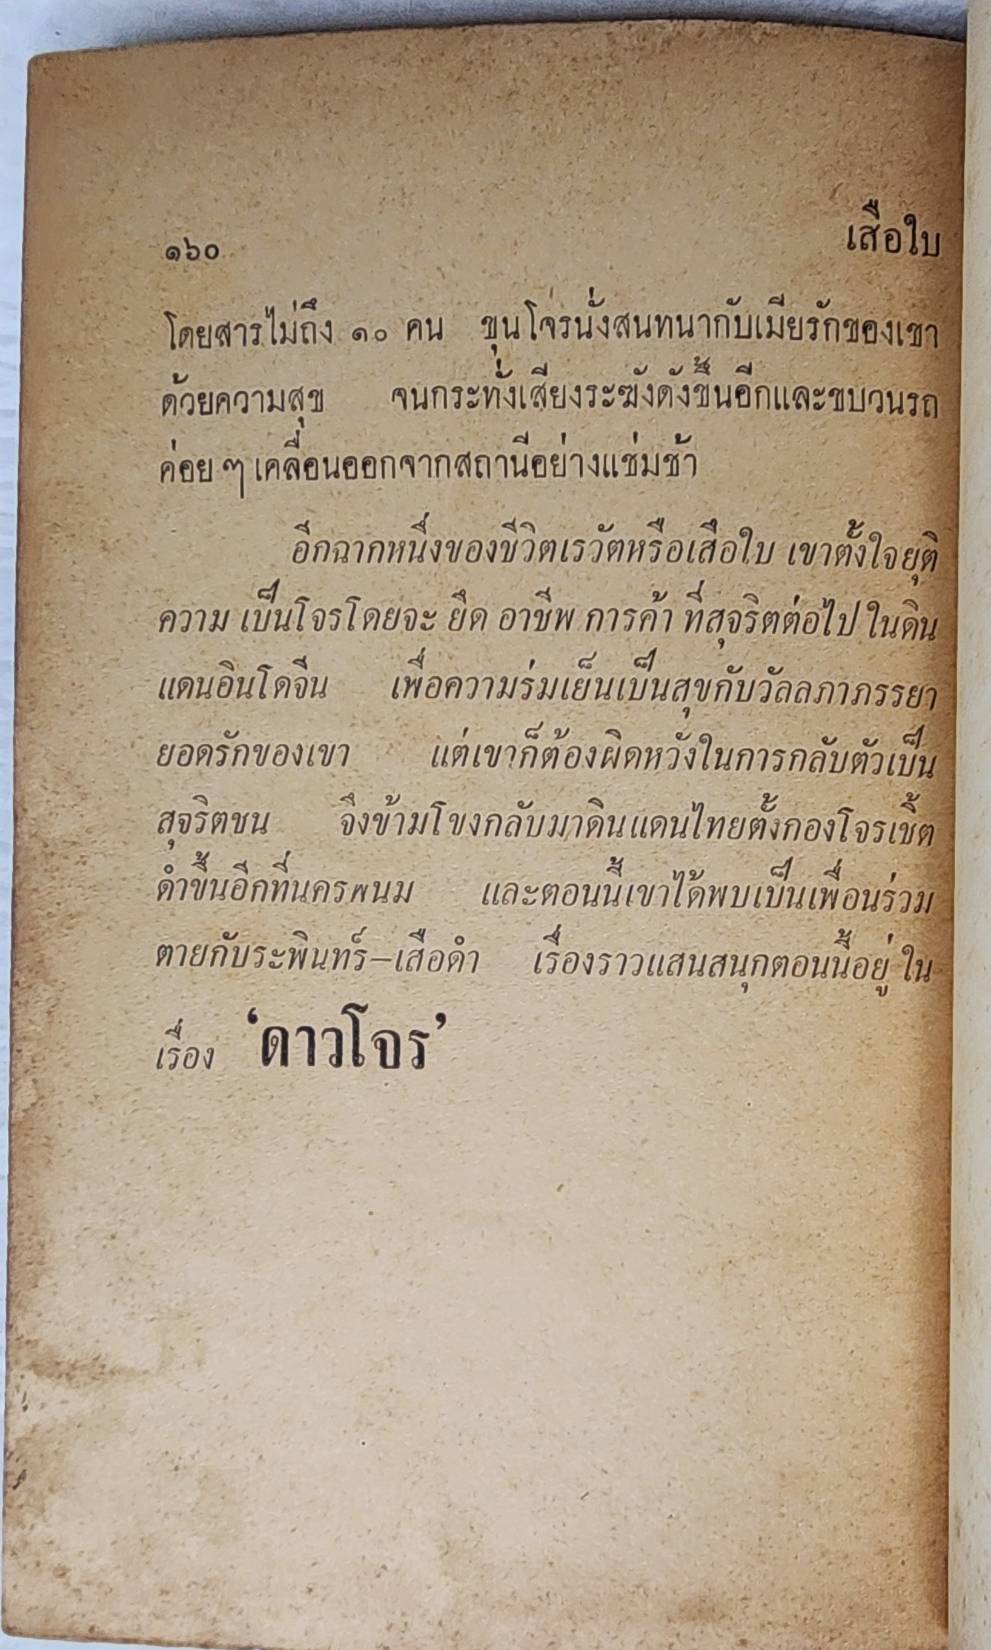 ๑๖๐ เสือใบ
โดยสารไม่ถึง ๑๐ คน ขุนโจรนั่งสนทนากับเมียรักของเขา
ด้วยความสุข จนกระทั่งเสียงระฆังดังขึ้นอีกและขบวนรถ
ค่อย ๆ เคลื่อนออกจากสถานีอย่างแช่มช้า
อีกฉากหนึ่งของชีวิตเรวัตหรือเสือใบ เขาตั้งใจยุติ
ความ เป็นโจรโดยจะ ยึด อาชีพ การค้า ที่สุจริตต่อไป ในดิน
แดนอินโดจีน เพื่อความร่มเย็นเป็นสุขกับวัลลภาภรรยา
ยอดรักของเขา แต่เขาก็ต้องผิดหวังในการกลับตัวเป็น
สุจริตชน จึงข้ามโขงกลับมาดินแดนไทยตั้งกองโจรเชิ้ต
ดำขึ้นอีกที่นครพนม และตอนนี้เขาได้พบเป็นเพื่อนร่วม
ตายกับระพินทร์–เสือดำ เรื่องราวแสนสนุกตอนนี้อยู่ ใน
เรื่อง ‘ดาวโจร’